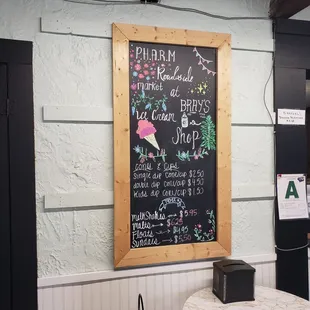 P.H.A.R.M
Roadside
market at
BRAY'S
Ice Cream
Shop
CONES & CUPS
Single dip cone/cup $2.50
double dip cone/cup $4.50
Kids dip cone/cup $1.50
milkshakes → $5.95
malts →
Floats → $4.95
Sundaes → $5.50
A